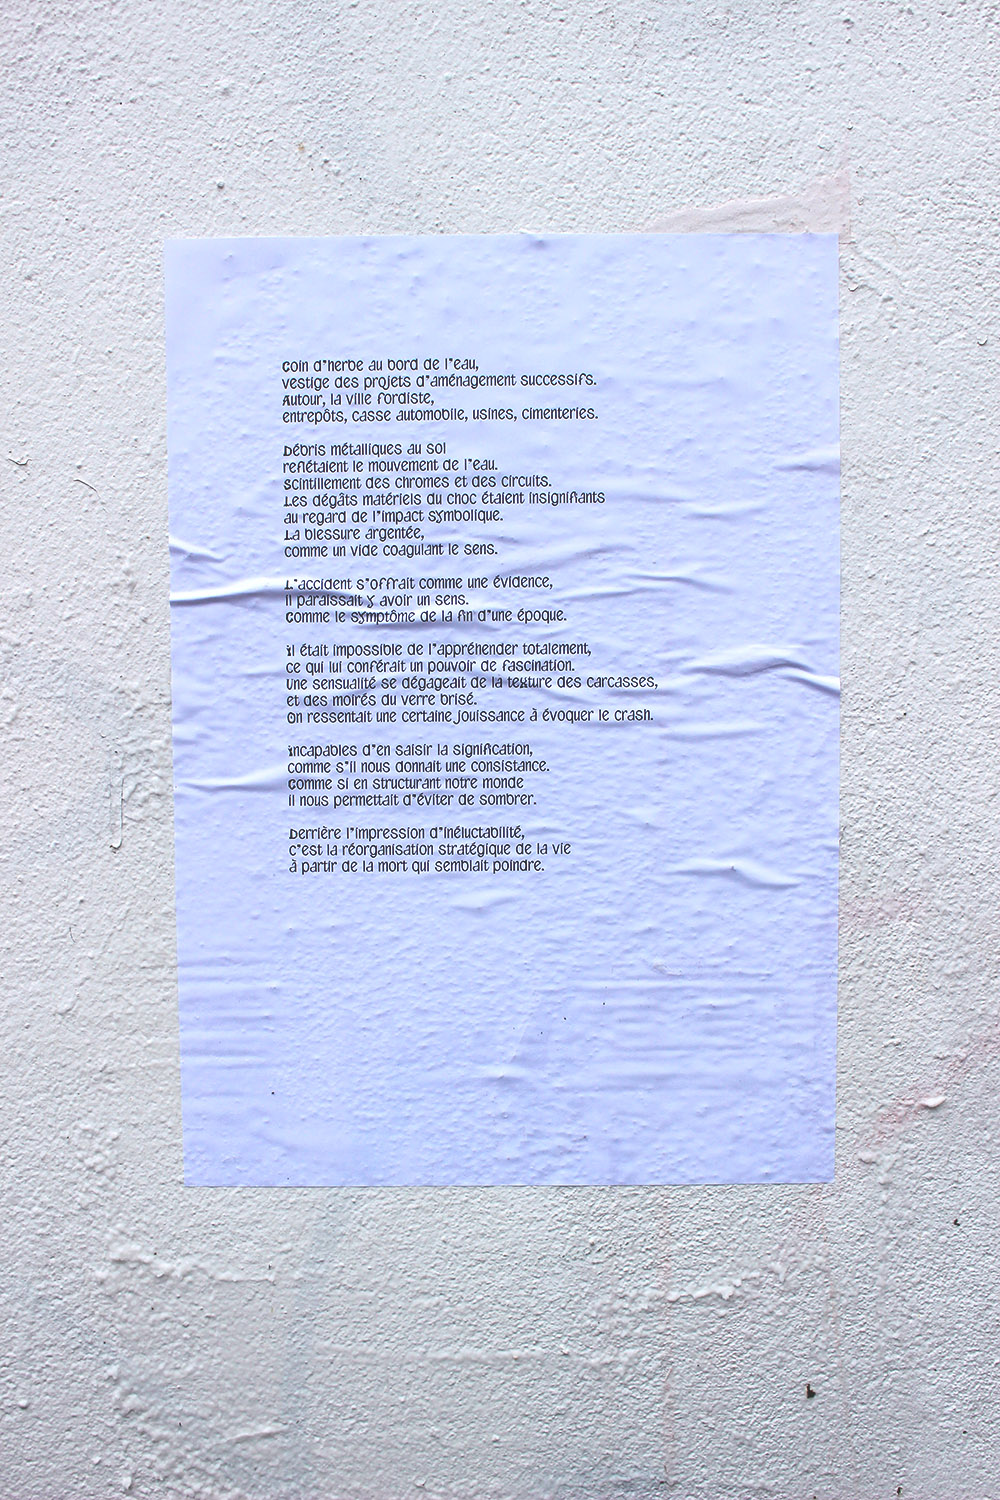 Coin d'herbe au bord de l'eau,
vestige des projets d'aménagement successifs.
Autour, la ville fordiste,
entrepôts, casse automobile, usines, cimenteries.
Débris métalliques au sol
reflétaient le mouvement de l'eau.
Scintillement des chromes et des circuits.
Les dégâts matériels du choc étaient insignifiants
au regard de l'impact symbolique.
La blessure argentée,
comme un vide coagulant le sens.
L'accident s'offrait comme une évidence,
il paraissait y avoir un sens.
Comme le symptôme de la fin d'une époque.
Il était impossible de l'appréhender totalement,
ce qui lui conférait un pouvoir de fascination.
Une sensualité se dégageait de la texture des carcasses,
et des moirés du verre brisé.
On ressentait une certaine jouissance à évoquer le crash.
Incapables d'en saisir la signification,
comme s'il nous donnait une consistance.
Comme si en structurant notre monde
il nous permettait d'éviter de sombrer.
Derrière l'impression d'inéluctabilité,
c'est la réorganisation stratégique de la vie
à partir de la mort qui semblait poindre.